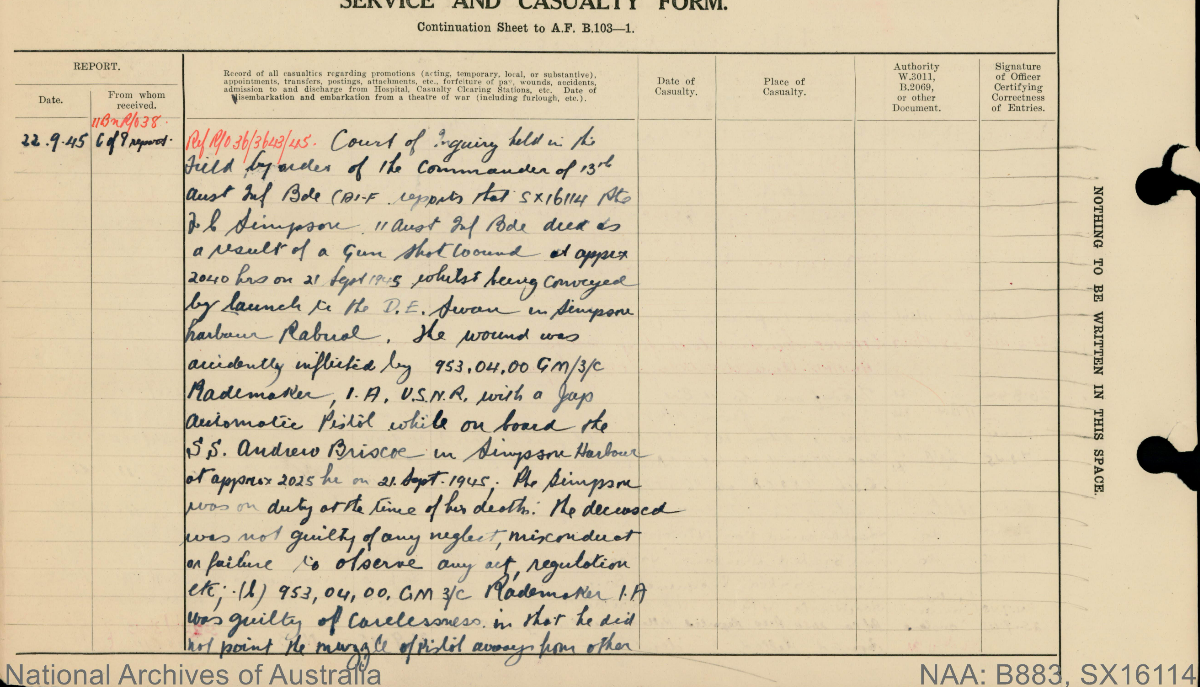 SERVICE AND CASUALTY FORM.
Continuation Sheet to A.F. B.103—1.
REPORT.
Date.
From whom received.
Record of all casualties regarding promotions (acting, temporary, local, or substantive),
appointments, transfers, postings, attachments, etc., forfeiture of pay, wounds, accidents,
admission to and discharge from Hospital, Casualty Clearing Stations, etc. Date of
disembarkation and embarkation from a theatre of war (including furlough, etc.).
Date of Casualty.
Place of Casualty.
Authority W.3011, B.2069, or other Document.
Signature of Officer Certifying Correctness of Entries.
11 Bn R/038.
22.9.45 C of I report.
Ref R/0 36/3643/45. Court of Inquiry held in the
Field by order of the Commander of 13th
Aust Inf Bde (AIF reports that SX16114 Pte
Simpson 11 Aust Inf Bde died as
a result of a Gun shot wound at approx
2040 hrs on 21 Sept 1945 whilst being conveyed
by launch to the D.E. Swan in Simpson
harbour Rabual. The wound was
accidently inflicted by 953.04.00 GM/3/C
Rademaker, I.A. U.S.N.R. with a Jap
Automatic Pistol while on board the
S.S. Andrew Briscoe in Simpson Harbour
at approx 2025 hr on 21 Sept. 1945; Pte Simpson
was on duty at the time of his death. The deceased
was not guilty of any neglect, misconduct
or failure to observe any act, regulation
etc; (b) 953,04,00, GM 3/C Rademaker I.A
was guilty of carelessness in that he did
not point the muzzle of pistol aways from other
NOTHING TO BE WRITTEN IN THIS SPACE.
National Archives of Australia
NAA: B883, SX16114